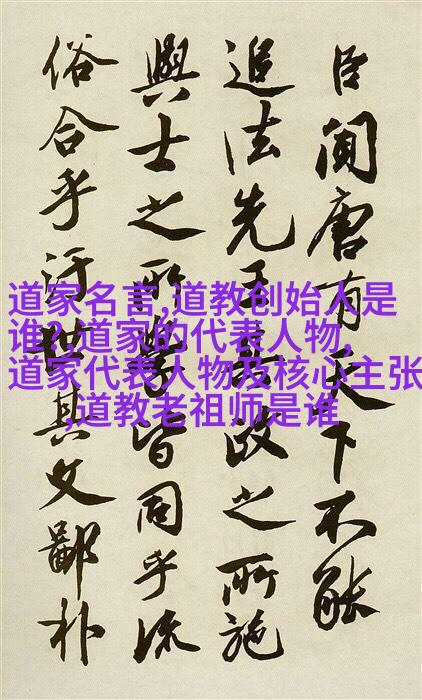 臣聞唐有天下不能
追法先王政之所施
與士之所學皆同乎流
俗合乎汙世其文鄙朴
道家名言,道教创始人是
谁? 道家的代表人物,
道家代表人物及核心主张
,道教老祖师是谁